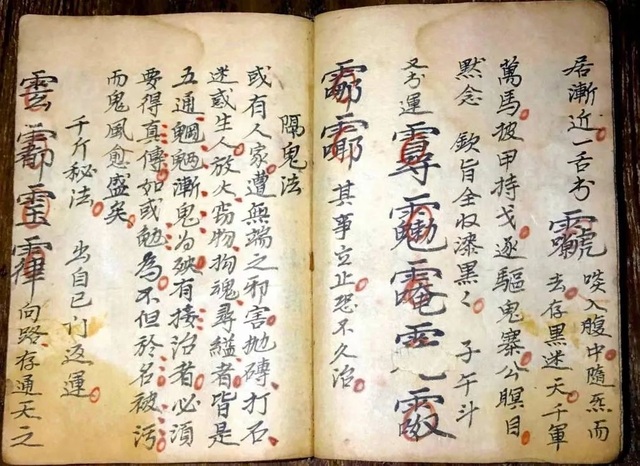 居漸近一舌出
啖入腹中隨炁而
去存黑迷天千軍
萬馬披甲持戈逐驅鬼寨公瞑目
默念 欽旨全收漆黑々 子午斗
又書運
其事立止恐不久治
隔鬼法
或有人家遭無端之邪害抛磚打石
迷或生人放火窃物拘魂尋縊者皆是
五通魍魎漸鬼為殃有接治者必須
要得真傳如或勉為不但於名被污
而鬼風愈盛矣
千斤秘法 出自已行返運
向路存通天之